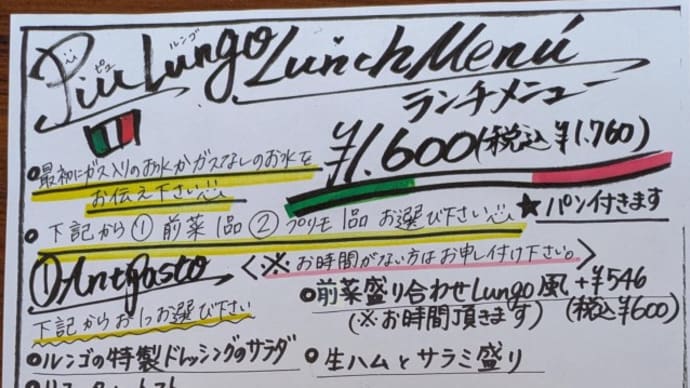 Piu Lungo Lunch Menú
ピュ ルンゴ
ランチメニュー
¥1.600(税込¥1.760)
●最初にガス入りのお水かガスなしのお水を
お伝え下さい
★パン付きます
●下記から①前菜1品②プリモ1品お選び下さい
①Antipasto
<※お時間がない方はお申し付け下さい。>
下記からお1つお選び下さい
●前菜盛り合わせLungo風+¥546
(※お時間頂きます)(税込¥600)
●ルンゴの特製ドレッシングのサラダ
●生ハムとサラミ盛り